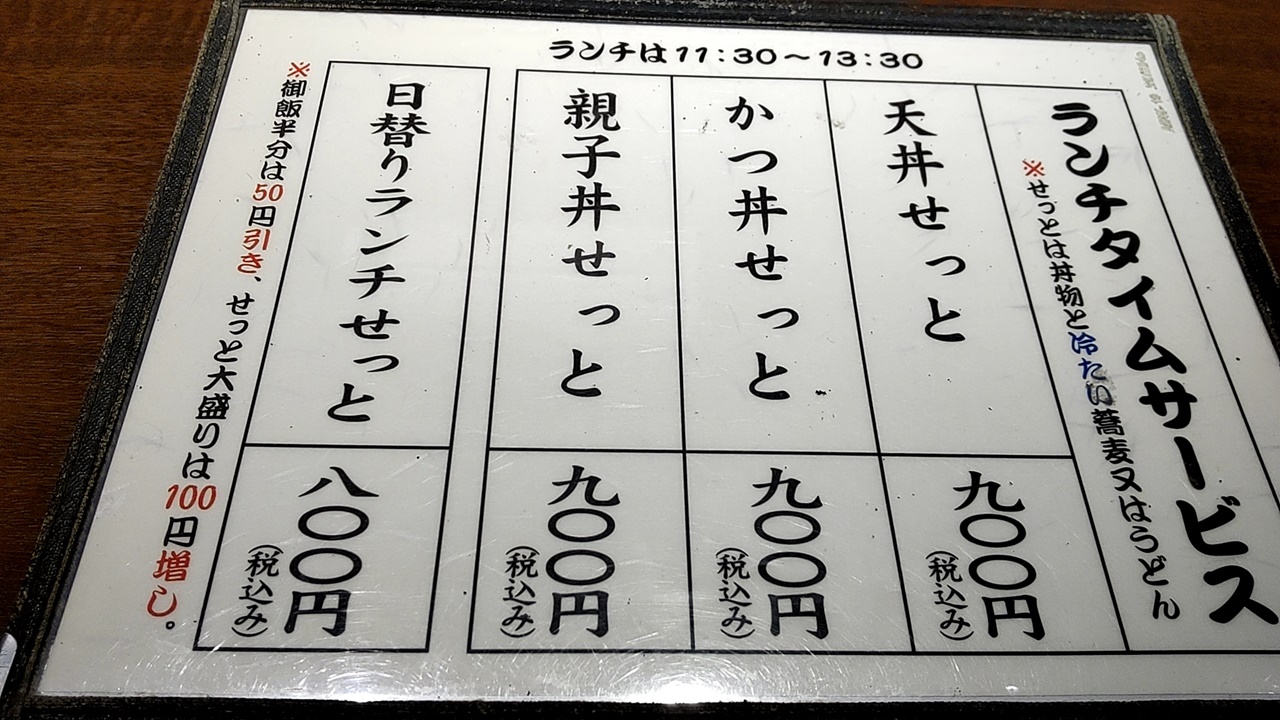 ランチは11:30～13:30
ランチタイムサービス
※せっとは丼物と冷たい蕎麦又はうどん
天丼せっと
九〇〇円
(税込み)
かつ丼せっと
九〇〇円
(税込み)
親子丼せっと
九〇〇円
(税込み)
日替りランチせっと
八〇〇円
(税込み)
※御飯半分は50円引き、せっと大盛りは100円増し。